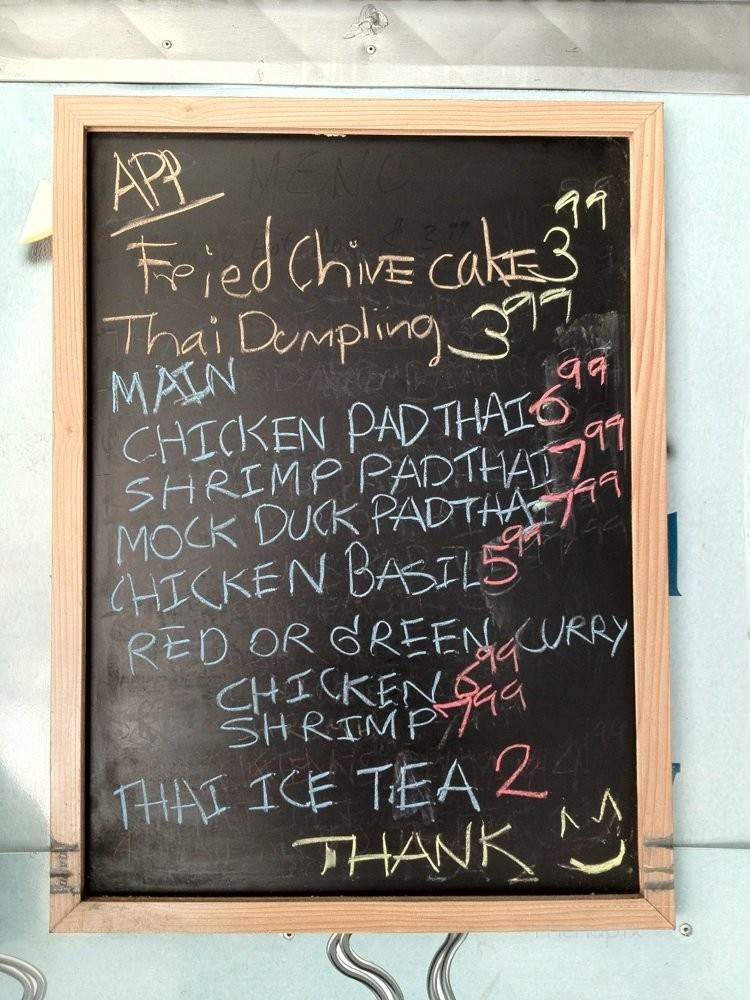 MENU
APP
Fried ChiVE cakE 3.99
Thai Dumpling 3.99
MAIN
CHICKEN PAD THAI 6.99
SHRIMP PAD THAI 7.99
MOCK DUCK PAD THAI 7.99
CHICKEN BASIL 5.99
RED OR GREEN CURRY
CHICKEN 6.99
SHRIMP 7.99
THAI ICE TEA 2
THANK